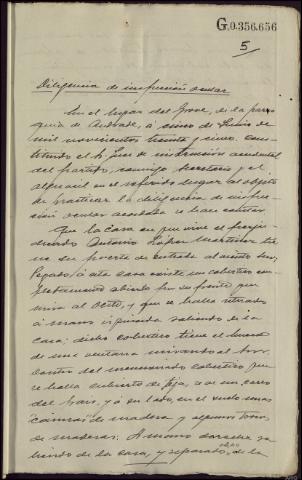 G.0.356.656
5
Diligencia de inspección ocular
En el lugar del Grove, de la parro
quia de Andrade, á cinco de Junio de
mil novecientos treinta y cinco, cons
tituido el Sr. Juez de instrucción accidental
del partido, conmigo Secretario y el
alguacil en el referido lugar al objeto
de practicar la diligencia de inspec
ción ocular acordada se hace constar:
Que la casa en que vive el perju
dicado Antonio López Martínez tie
ne su puerta de entrada al viento Sur.
Pegado á esta casa existe un cobertizo com
pletamente abierto por su frente que
mira al Oeste, y que se halla situado
á mano izquierda saliendo de la
casa; dicho cobertizo tiene el hueco
de una ventana mirando al Sur.
Dentro del mencionado cobertizo que
se halla cubierto de teja, se ve un carro
del país, y á un lado, en el suelo unas
de madera y algunos
de madera. A mano derecha sa
liendo de la casa, y separado de la